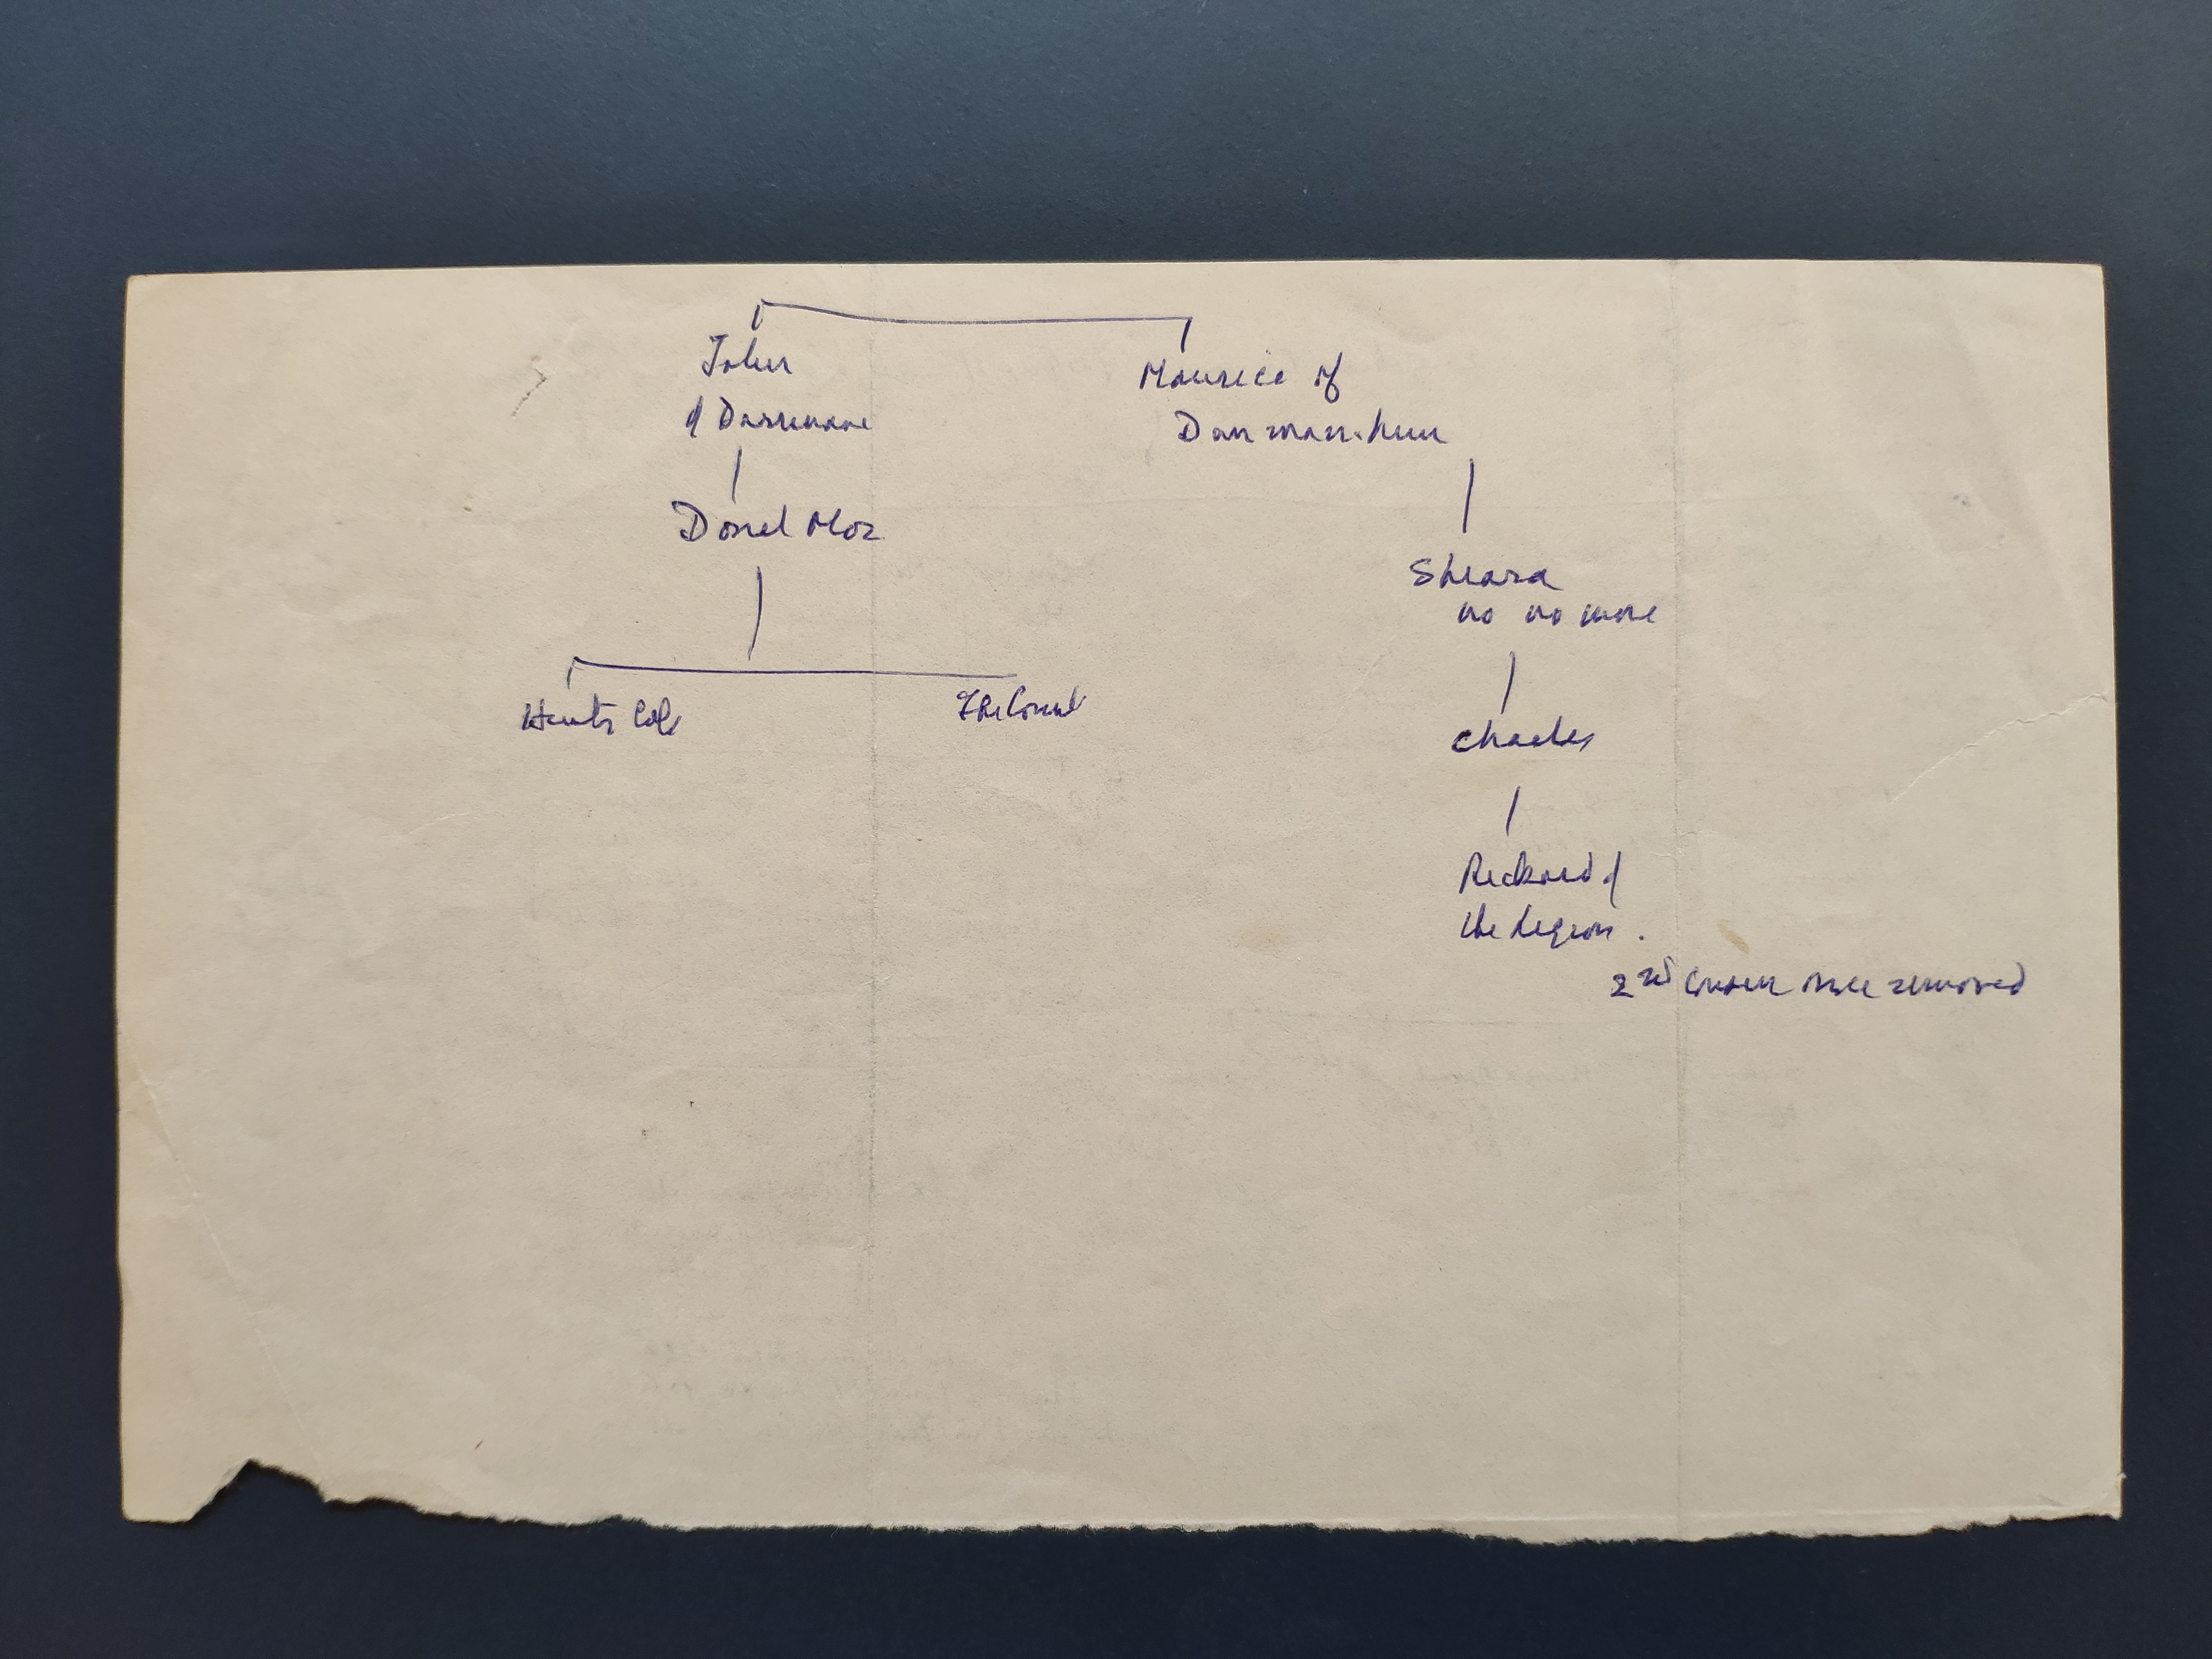 John
of Darrynane
Maurice of
Donel Mor
Sheara
no no more
Hunting Cap
The Count
Charles
Richard of
the Legion.
2nd Cousin once removed